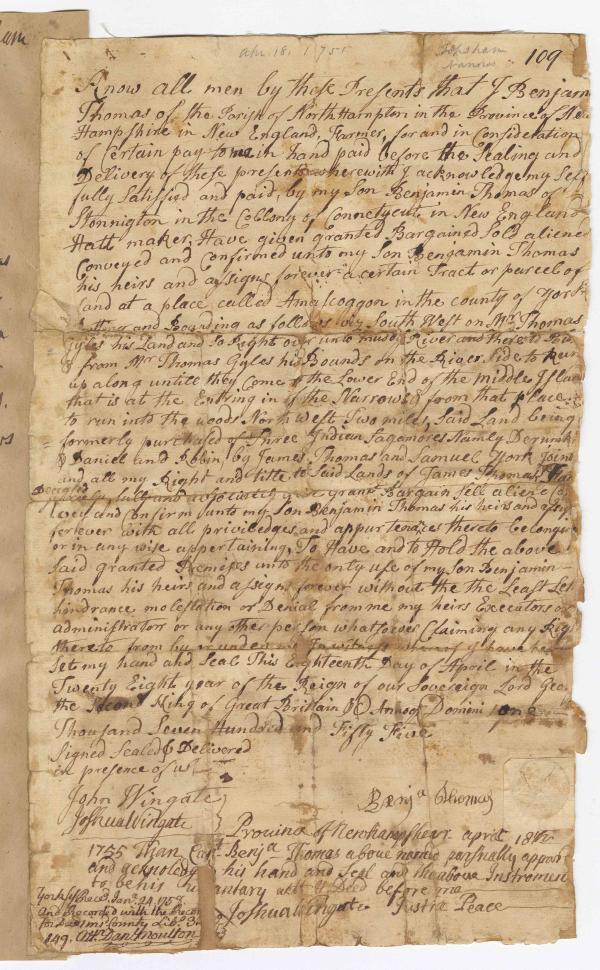 Apr 18, 1755
Topsham
109
Know all men by these Presents that I Benjam
Thomas of the Parish of North Hampton in the Province of New
Hampshire in New England, Farmer, for and in Consideration
of Certain pay to me in hand paid before the Sealing and
Delivery of these presents wherewith I acknowledge my Self
fully Satisfied and paid, by my Son Benjamin Thomas of
Stonnigton in the Collony of Connetycut in New England
Hatt maker, Have given granted Bargained Sold aliened
Conveyed and Confirmed unto my Son Benjamin Thomas
his heirs and assigns forever a certain Tract or parcel of
Land at a place called Amascoggon in the county of York
and Bounding as follows viz South West on Mr Thomas
Gyles his Land and So Right over unto muddy River and there to
from Mr Thomas Gyles his Bounds on the River Side to Run
up along untill they Come to the Lower End of the middle Island
that is at the Entring in of the Narrows & from that place
to run into the woods North West Two miles, Said Land being
formerly purchased of three Indian Sagamores Namly Derumk
& Daniel and Robin, by James Thomas and Samuel York
and all my Right and title to Said Lands of James Thomas
Deceased
fully and absolutely give grant Bargain Sell aliene Co
vey and Confirm unto my Son Benjamin Thomas his heirs and assig
forever with all priviledges and appurtenances thereto belonging
or in any wise appertaining, To Have and to Hold the above
Said granted Premises unto the only use of my Son Benjamin
Thomas his heirs and assigns forever without the the Least Lett
hindrance molestation or Denial from me my heirs Executors or
administrators or any other person whatsoever Claiming any Rig
thereto from by or under me In witness whereof I have
Set my hand and Seal This Eighteenth Day of April in the
Twenty Eight year of the Reign of our Sovereign Lord Geo
the Second King of Great Brittain & Annoq Domini one
Thousand Seven Hundred and Fifty Five
Signed Sealed & Delivered
in presence of us
John Wingate
Joshua Wingate
Benja Thomas
Province of Newhampsherr april 18th
1755 Than Benja Thomas above named parsnally appear
and acknoledg his hand and Seal and the above Instromen
to be his vantary act & Deed before me
Joshua Wingate Justis Peace
York ss Jan. 24. 1758.
and Recorded with the Records
for Deeds in sd County Lib.
149. Attr Danl Moulton